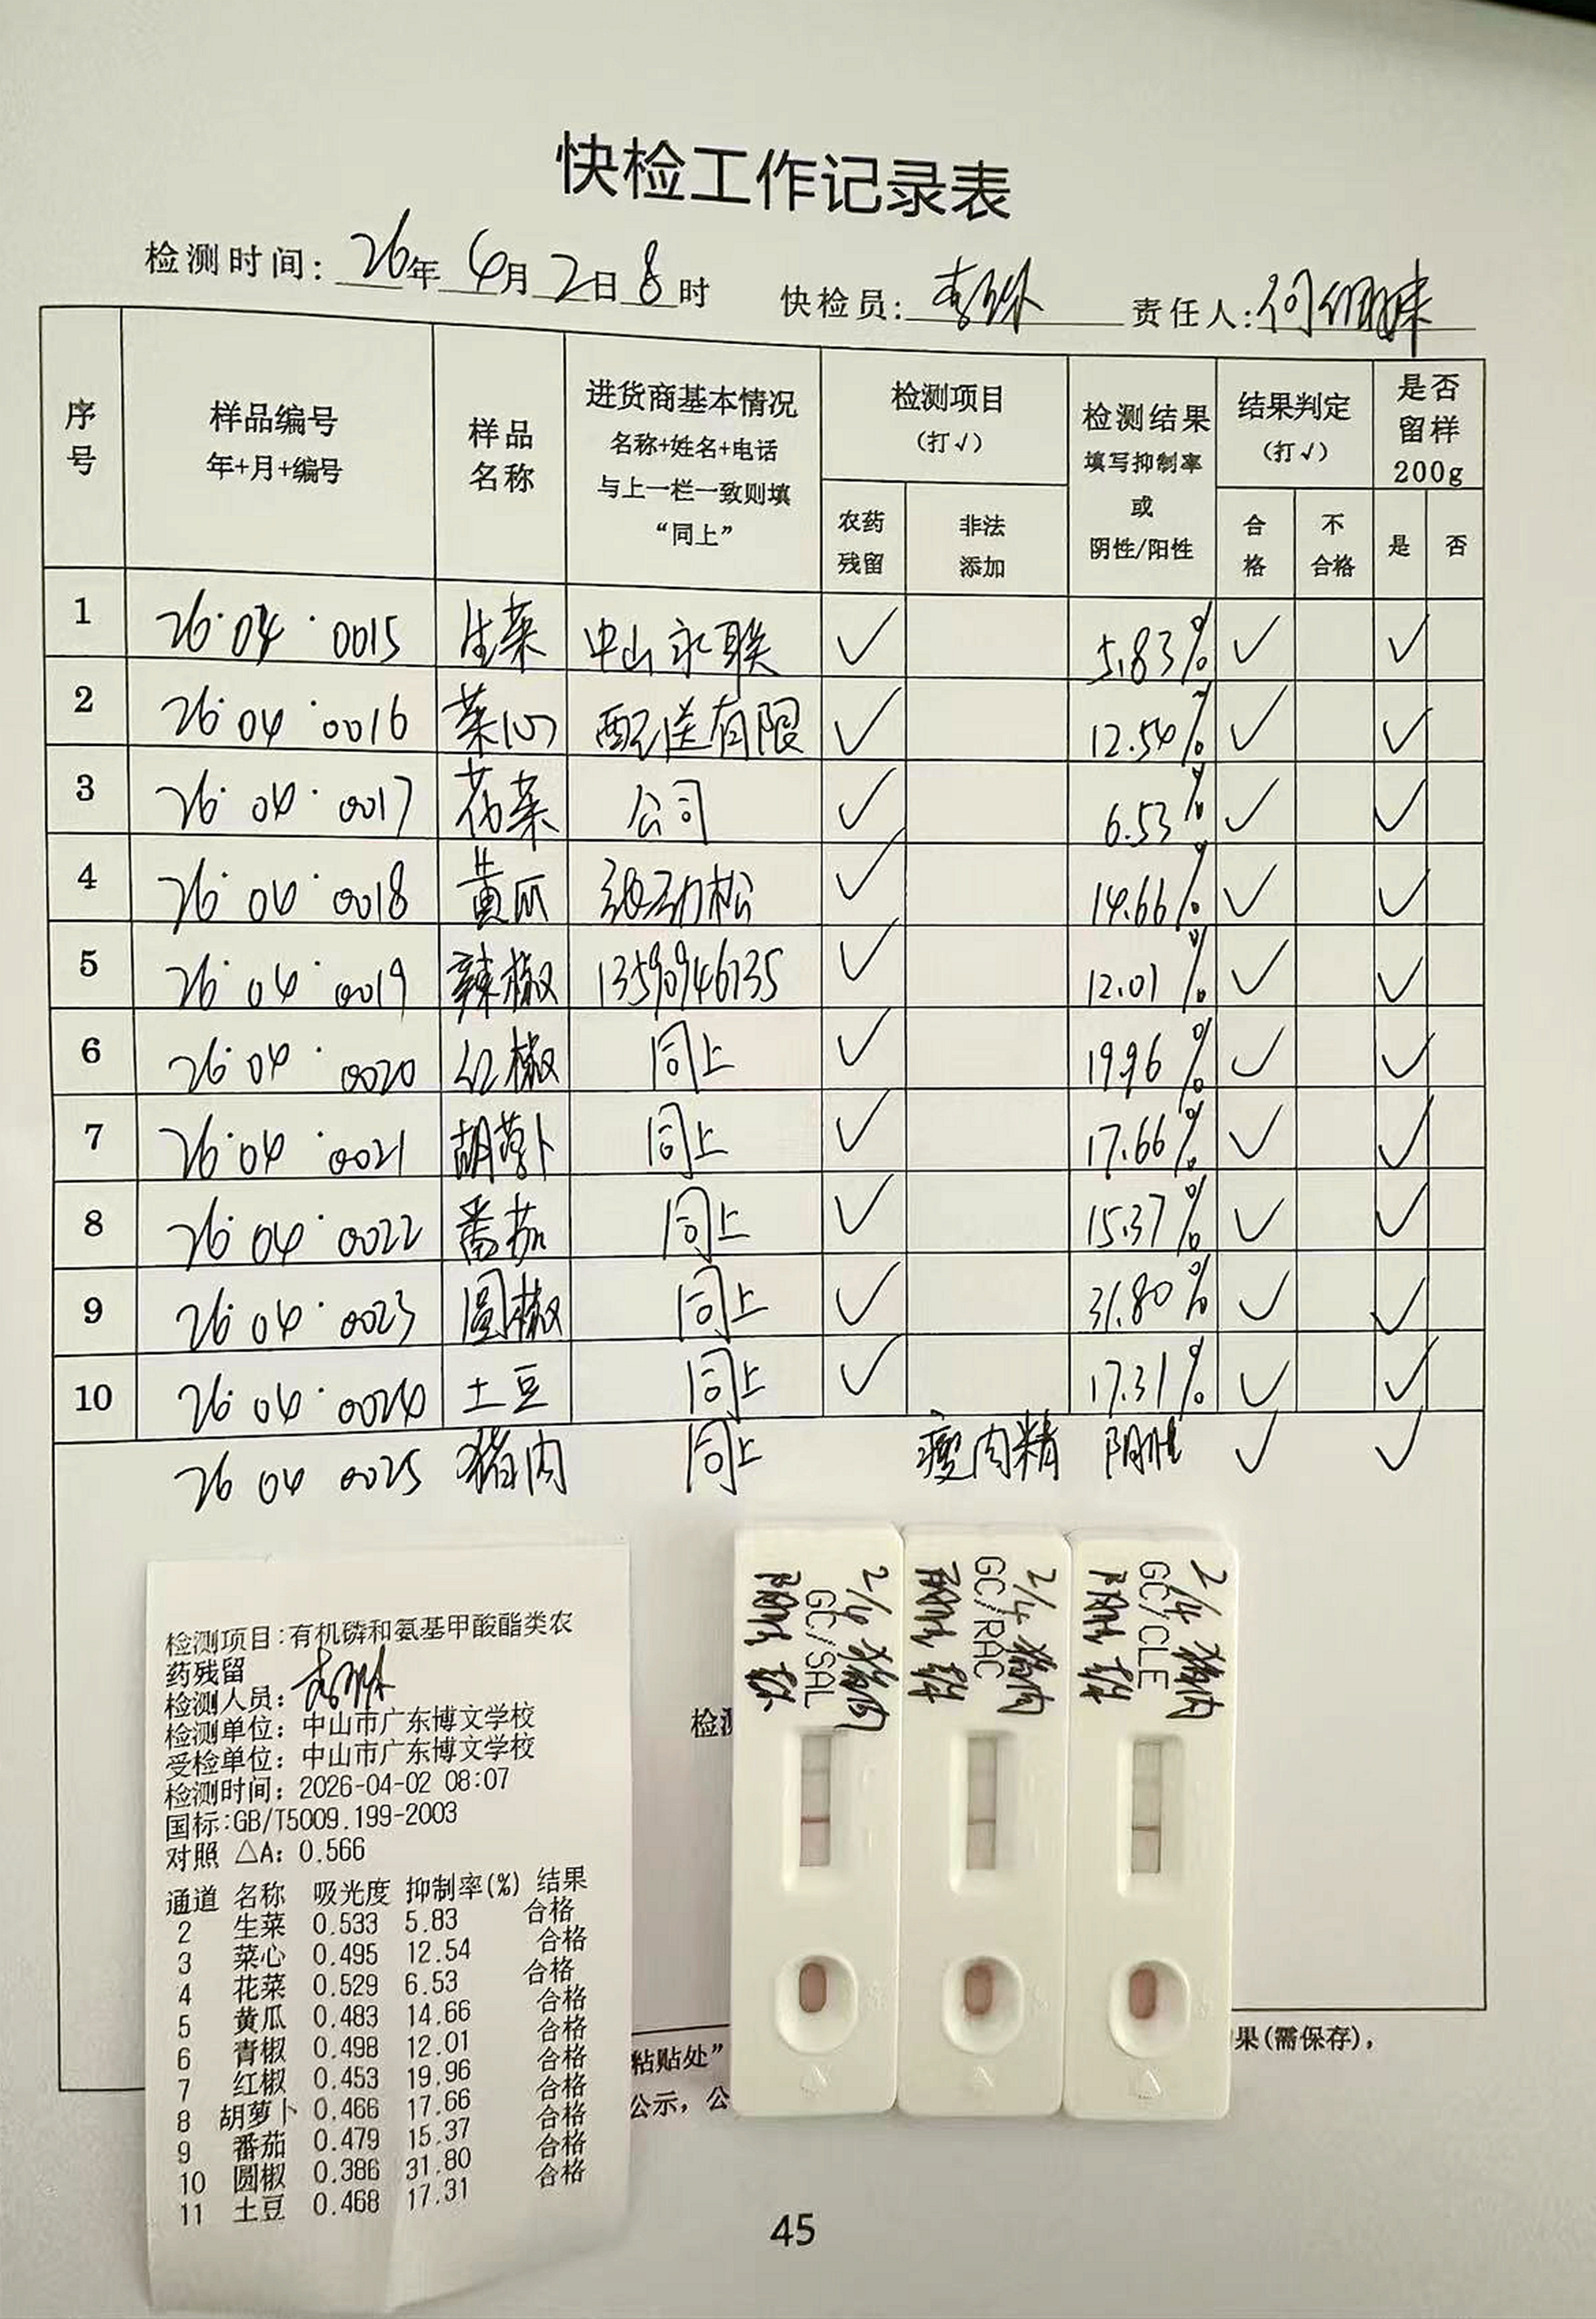 快检工作记录表
检测时间: 26年 4月 2日 8时 快检员: 责任人:
序号 样品编号 年+月+编号 样品名称 进货商基本情况 名称+姓名+电话 与上一栏一致则填“同上” 检测项目 (打√) 农药残留 非法添加 检测结果 填写抑制率 或 阴性/阳性 结果判定 (打√) 合格 不合格 是否留样 200g 是 否
1 26·04·0015 生菜 中山永联 ✓ 5.83% ✓ ✓
2 26·04·0016 菜心 配送有限 ✓ 12.54% ✓ ✓
3 26·04·0017 花菜 公司 ✓ 6.53% ✓ ✓
4 26·04·0018 黄瓜 劲松 ✓ 14.66% ✓ ✓
5 26·04·0019 辣椒 13590946735 ✓ 12.01% ✓ ✓
6 26·04·0020 红椒 同上 ✓ 19.96% ✓ ✓
7 26·04·0021 胡萝卜 同上 ✓ 17.66% ✓ ✓
8 26·04·0022 番茄 同上 ✓ 15.37% ✓ ✓
9 26·04·0023 圆椒 同上 ✓ 31.80% ✓ ✓
10 26·04·0024 土豆 同上 ✓ 17.31% ✓ ✓
26 04 0025 猪肉 同上 瘦肉精 阴性 ✓ ✓
检测项目:有机磷和氨基甲酸酯类农
药残留
检测人员:
检测单位: 中山市广东博文学校
受检单位: 中山市广东博文学校
检测时间: 2026-04-02 08:07
国标:GB/T5009.199-2003
对照 △A: 0.566
通道 名称 吸光度 抑制率(%) 结果
2 生菜 0.533 5.83 合格
3 菜心 0.495 12.54 合格
4 花菜 0.529 6.53 合格
5 黄瓜 0.483 14.66 合格
6 青椒 0.498 12.01 合格
7 红椒 0.453 19.96 合格
8 胡萝卜 0.466 17.66 合格
9 番茄 0.479 15.37 合格
10 圆椒 0.386 31.80 合格
11 土豆 0.468 17.31 合格
2/4 猪肉
GC/SAL
阴性
2/4 猪肉
GC/RAC
阴性
2/4 猪肉
GC/CLE
阴性
检
果(需保存),
粘贴处”
公示, 公
45